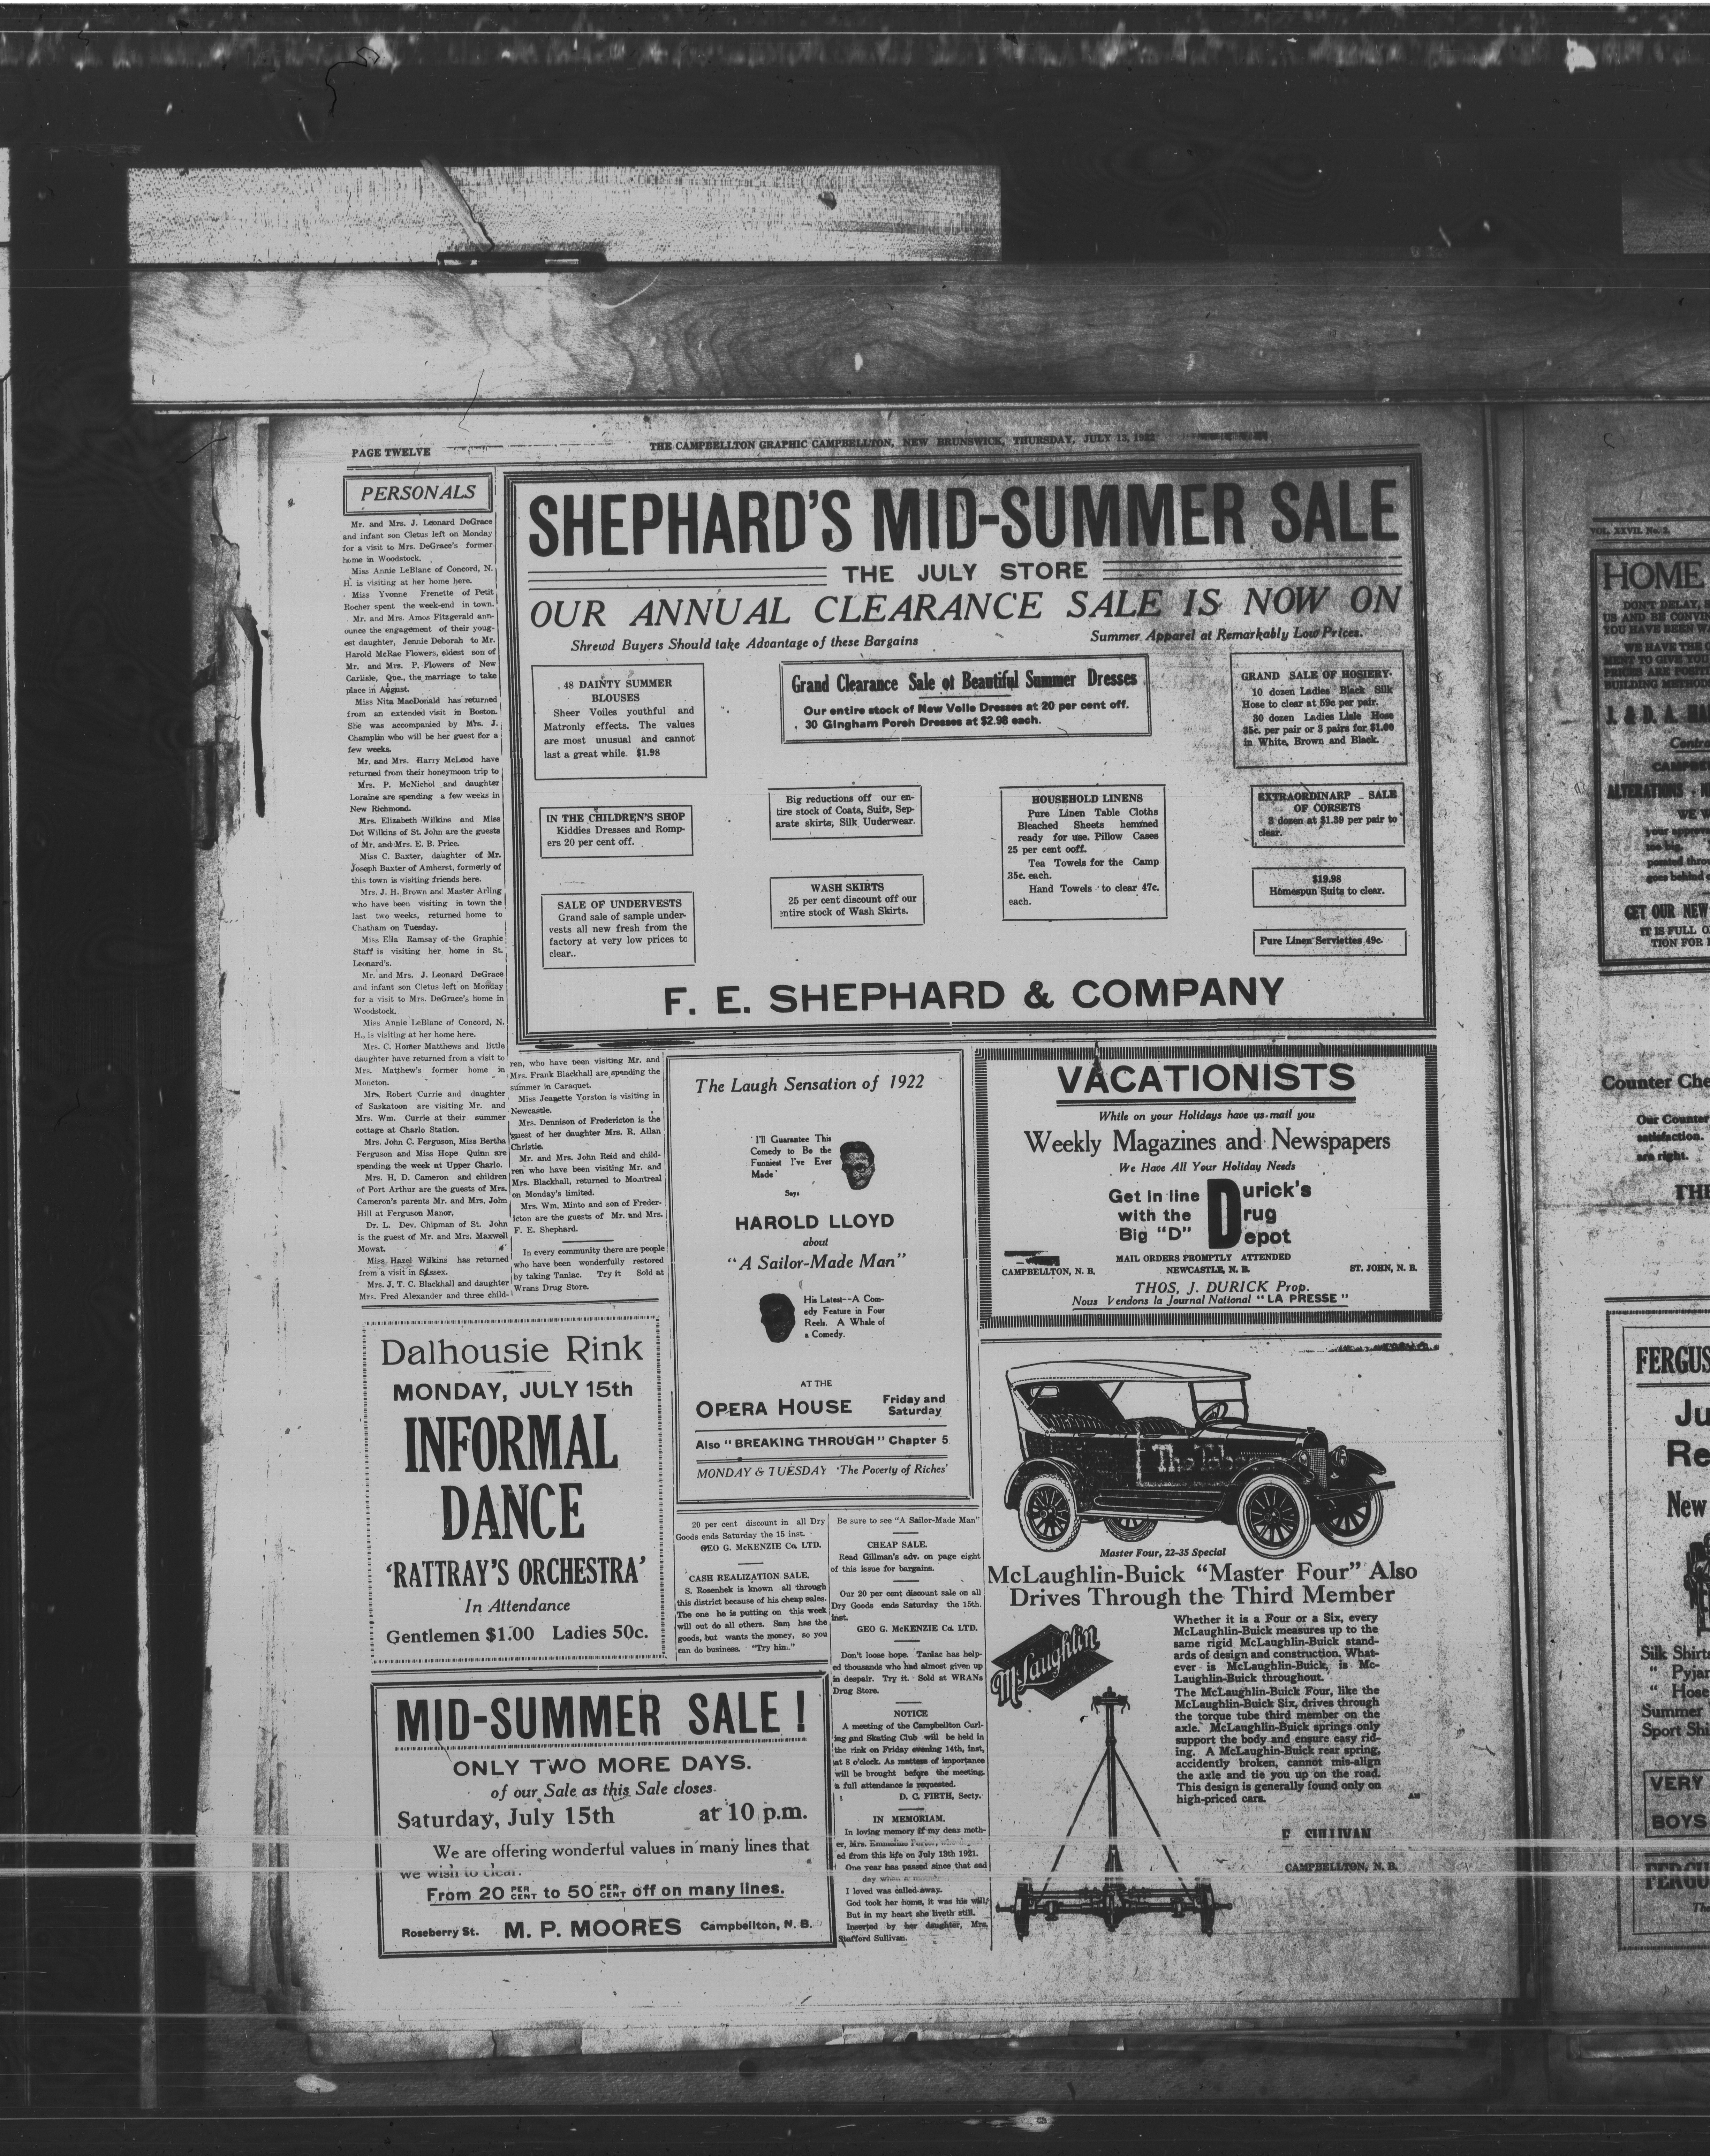 PAGE TWELVE
THE CAMPBELLTON GRAPHIC CAMPBELLTON, NEW BRUNSWICK, THURSDAY, JULY 13, 1922
PERSONALS
Mr. and Mrs. J. Leonard DeGrace
and infant son Cletus left on Monday
for a visit to Mrs. DeGrace's former
home in Woodstock.
Miss Annie LeBlanc of Concord, N.
H. is visiting at her home here.
Miss Yvonne Frenette of Petit
Rocher spent the week-end in town.
Mr. and Mrs. Amos Fitzgerald ann-
ounce the engagement of their youg-
est daughter, Jennie Deborah to Mr.
Harold McRae Flowers, eldest son of
Mr. and Mrs. P. Flowers of New
Carlisle, Que., the marriage to take
place in August.
Miss Nita MacDonald has returned
from an extended visit in Boston.
She was accompanied by Mrs. J.
Champlin who will be her guest for a
few weeks.
Mr. and Mrs. Harry McLeod have
returned from their honeymoon trip to
Mrs. P. McNichol and daughter
Loraine are spending a few weeks in
New Richmond.
Mrs. Elizabeth Wilkins and Miss
Dot Wilkins of St. John are the guests
of Mr. and Mrs. E. B. Price.
Miss C. Baxter, daughter of Mr.
Joseph Baxter of Amherst, formerly of
this town is visiting friends here.
Mrs. J. H. Brown and Master Arling
who have been visiting in town the
last two weeks, returned home to
Chatham on Tuesday.
Miss Ella Ramsay of the Graphic
Staff is visiting her home in St.
Leonard's.
Mr. and Mrs. J. Leonard DeGrace
and infant son Cletus left on Monday
for a visit to Mrs. DeGrace's home in
Woodstock.
Miss Annie LeBlanc of Concord, N.
H., is visiting at her home here.
Mrs. C. Homer Matthews and little
daughter have returned from a visit to
Mrs. Matthew's former home in
Moncton.
Mrs. Robert Currie and daughter
of Saskatoon are visiting Mr. and
Mrs. Wm. Currie at their summer
cottage at Charlo Station.
Mrs. John C. Ferguson, Miss Bertha
Ferguson and Miss Hope Quinn are
spending the week at Upper Charlo.
Mrs. H. D. Cameron and children
of Port Arthur are the guests of Mrs.
Cameron's parents Mr. and Mrs. John
Hill at Ferguson Manor,
Dr. L. Dev. Chipman of St. John
is the guest of Mr. and Mrs. Maxwell
Mowat.
Miss Hazel Wilkins has returned
from a visit in Sussex.
Mrs. J. T. C. Blackhall and daughter
Mrs. Fred Alexander and three child-
ren, who have been visiting Mr. and
Mrs. Frank Blackhall are spending the
summer in Caraquet.
Miss Jeanette Yorston is visiting in
Newcastle.
Mrs. Dennison of Fredericton is the
guest of her daughter Mrs. R. Allan
Christie.
Mr. and Mrs. John Reid and child-
ren who have been visiting Mr. and
Mrs. Blackhall, returned to Montreal
on Monday's limited.
Mrs. Wm. Minto and son of Freder-
icton are the guests of Mr. and Mrs.
F. E. Shephard.
In every community there are people
who have been wonderfully restored
by taking Tanlac. Try it Sold at
Wrans Drug Store.
SHEPHARD'S MID-SUMMER SALE
THE JULY STORE
OUR ANNUAL CLEARANCE SALE IS NOW ON
Shrewd Buyers Should take Advantage of these Bargains
Summer Apparel at Remarkably Low Prices.
48 DAINTY SUMMER
BLOUSES
Sheer Voiles youthful and
Matronly effects. The values
are most unusual and cannot
last a great while. $1.98
Grand Clearance Sale ot Beautiful Summer Dresses
Our entire stock of New Voile Dresses at 20 per cent off.
30 Gingham Porch Dresses at $2.98 each.
GRAND SALE OF HOSIERY.
10 dozen Ladies Black Silk
Hose to clear at 59c per pair.
30 dozen Ladies Lisle Hose
35c. per pair or 3 pairs for $1.00
in White, Brown and Black.
IN THE CHILDREN'S SHOP
Kiddies Dresses and Romp-
ers 20 per cent off.
Big reductions off our en-
tire stock of Coats, Suits, Sep-
arate skirts, Silk Uuderwear.
HOUSEHOLD LINENS
Pure Linen Table Cloths
Bleached Sheets hemmed
ready for use. Pillow Cases
25 per cent ooff.
Tea Towels for the Camp
35c. each.
Hand Towels to clear 47c.
each.
EXTRAORDINARP SALE
OF CORSETS
3 dozen at $1.39 per pair to
clear.
SALE OF UNDERVESTS
Grand sale of sample under-
vests all new fresh from the
factory at very low prices to
clear..
WASH SKIRTS
25 per cent discount off our
entire stock of Wash Skirts.
$19.98
Homespun Suits to clear.
Pure Linen Serviettes 49c.
F. E. SHEPHARD & COMPANY
The Laugh Sensation of 1922
'I'll Guarantee This
Comedy to Be the
Funniest I've Ever
Made'
Says
HAROLD LLOYD
about
"A Sailor-Made Man"
His Latest--A Com-
edy Feature in Four
Reels. A Whale of
a Comedy.
AT THE
OPERA HOUSE Friday and
Saturday
Also "BREAKING THROUGH" Chapter 5
MONDAY & TUESDAY 'The Poverty of Riches'
VACATIONISTS
While on your Holidays have us mail you
Weekly Magazines and Newspapers
We Have All Your Holiday Needs
Get in line
with the
Big "D"
Durick's
rug
epot
MAIL ORDERS PROMPTLY ATTENDED
CAMPBELLTON, N. B. NEWCASTLE, N. B. ST. JOHN, N. B.
THOS, J. DURICK Prop.
Nous Vendons la Journal National "LA PRESSE"
Dalhousie Rink
MONDAY, JULY 15th
INFORMAL
DANCE
'RATTRAY'S ORCHESTRA'
In Attendance
Gentlemen $1.00 Ladies 50c.
20 per cent discount in all Dry
Goods ends Saturday the 15 inst.
GEO G. McKENZIE Co. LTD.
CASH REALIZATION SALE.
S. Rosenhek is known all through
this district because of his cheap sales.
The one he is putting on this week
will out do all others. Sam has the
goods, but wants the money, so you
can do business. "Try him."
Be sure to see "A Sailor-Made Man"
CHEAP SALE.
Read Gillman's adv. on page eight
of this issue for bargains.
Our 20 per cent discount sale on all
Dry Goods ends Saturday the 15th.
inst.
GEO G. McKENZIE Co. LTD.
Don't loose hope. Tanlac has help-
ed thousands who had almost given up
in despair. Try it. Sold at WRANs
Drug Store.
NOTICE
A meeting of the Campbellton Curl-
ing and Skating Club will be held in
the rink on Friday evening 14th, inst,
at 8 o'clock. As matters of importance
will be brought before the meeting,
a full attendance is requested.
D. C. FIRTH, Secty.
IN MEMORIAM.
In loving memory if my dear moth-
er, Mrs.
ed from this life on July 13th 1921.
One year has passed since that sad
day when a mother
I loved was called away.
God took her home, it was his will,
But in my heart she liveth still.
Inserted by her daughter, Mrs.
Stafford Sullivan.
MID-SUMMER SALE!
ONLY TWO MORE DAYS.
of our Sale as this Sale closes
Saturday, July 15th at 10 p.m.
We are offering wonderful values in many lines that
we wish to clear.
From 20 PER CENT to 50 PER CENT off on many lines.
Roseberry St. M. P. MOORES Campbellton, N. B.
Master Four, 22-35 Special
McLaughlin-Buick "Master Four" Also
Drives Through the Third Member
McLaughlin
Whether it is a Four or a Six, every
McLaughlin-Buick measures up to the
same rigid McLaughlin-Buick stand-
ards of design and construction. What-
ever is McLaughlin-Buick, is Mc-
Laughlin-Buick throughout.
The McLaughlin-Buick Four, like the
McLaughlin-Buick Six, drives through
the torque tube third member on the
axle. McLaughlin-Buick springs only
support the body and ensure easy rid-
ing. A McLaughin-Buick rear spring,
accidently broken, cannot mis-align
the axle and tie you up on the road.
This design is generally found only on
high-priced cars.
SULLIVAN
CAMPBELLTON, N. B.
VOL. XXVII. No. 2.
HOME
DON'T DELAY,
US AND BE CONVIN
YOU HAVE BEEN WA
WE HAVE THE
MENT TO GIVE YOU
PRICES ARE POSITI
BUILDING METHODS
J. & D. A. HA
Contra
CAMPBE
ALTERATIONS
WE W
your approva
too big,
pected throu
goes behind
GET OUR NEW
IT IS FULL O
TION FOR
Counter Che
Our Counter
satisfaction.
are right.
THE
FERGUS
Ju
Re
New
Silk Shirts
" Pyjar
" Hose
Summer
Sport Shi
VERY
BOYS
FERGU
The